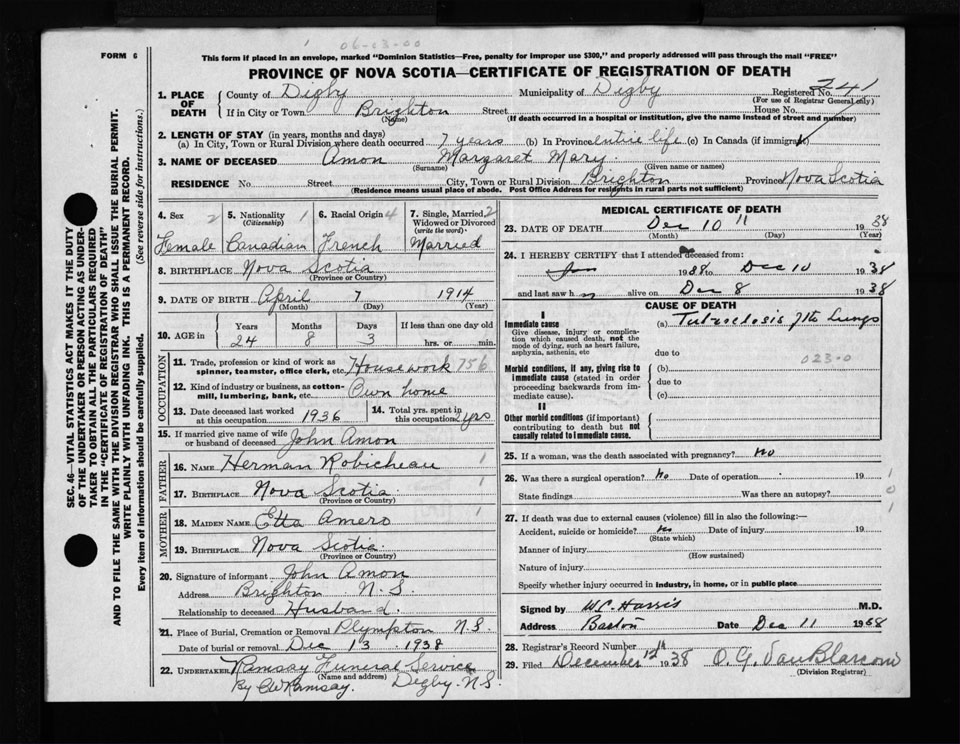 06-23-00
FORM 6
This form if placed in an envelope, marked "Dominion Statistics—Free, penalty for improper use $300," and properly addressed will pass through the mail "FREE"
PROVINCE OF NOVA SCOTIA—CERTIFICATE OF REGISTRATION OF DEATH
SEC. 46—VITAL STATISTICS ACT MAKES IT THE DUTY
OF THE UNDERTAKER OR PERSON ACTING AS UNDER-
TAKER TO OBTAIN ALL THE PARTICULARS REQUIRED
IN THE "CERTIFICATE OF REGISTRATION OF DEATH"
AND TO FILE THE SAME WITH THE DIVISION REGISTRAR WHO SHALL ISSUE THE BURIAL PERMIT.
WRITE PLAINLY WITH UNFADING INK. THIS IS A PERMANENT RECORD.
Every item of information should be carefully supplied. (See reverse side for instructions.)
1. PLACE OF DEATH County of Digby Municipality of Digby Registered No. 241
(For use of Registrar General only)
If in City or Town Brighton Street House No.
(Name) (If death occurred in a hospital or institution, give the name instead of street and number)
2. LENGTH OF STAY (in years, months and days)
(a) In City, Town or Rural Division where death occurred 7 years (b) In Province entire life (c) In Canada (if immigrant)
3. NAME OF DECEASED Amon Margaret Mary
(Surname) (Given name or names)
RESIDENCE No. Street City, Town or Rural Division Brighton Province Nova Scotia
(Residence means usual place of abode. Post Office Address for residents in rural parts not sufficient)
4. Sex 2 5. Nationality 1 (Citizenship) 6. Racial Origin 4 7. Single, Married 2 Widowed or Divorced (write the word)
Female Canadian French Married
8. BIRTHPLACE Nova Scotia
(Province or Country)
9. DATE OF BIRTH April 7 1914
(Month) (Day) (Year)
10. AGE in Years Months Days If less than one day old
24 8 3 hrs. or min.
OCCUPATION
11. Trade, profession or kind of work as spinner, teamster, office clerk, etc. Housework 756
12. Kind of industry or business, as cotton-mill, lumbering, bank, etc. Own home
13. Date deceased last worked at this occupation 1936 14. Total yrs. spent in this occupation 2 yrs
15. If married give name of wife or husband of deceased John Amon
FATHER
16. NAME Herman Robicheau 1
17. BIRTHPLACE Nova Scotia 1
(Province or Country)
MOTHER
18. MAIDEN NAME Etta Amero 1
19. BIRTHPLACE Nova Scotia
(Province or Country)
20. Signature of informant John Amon
Address Brighton N.S.
Relationship to deceased Husband.
21. Place of Burial, Cremation or Removal Plympton N.S.
Date of burial or removal Dec 13 1938
22. UNDERTAKER Ramsay Funeral Service
(Name and address)
By CW Ramsay. Digby N.S.
MEDICAL CERTIFICATE OF DEATH
23. DATE OF DEATH Dec 10 11 1938
(Month) (Day) (Year)
24. I HEREBY CERTIFY that I attended deceased from:
Jan 1938 to Dec 10 1938
and last saw h alive on Dec 8 1938
CAUSE OF DEATH
I
Immediate cause
Give disease, injury or complication which caused death, not the mode of dying, such as heart failure, asphyxia, asthenia, etc
(a) Tuberclosis of the Lungs
due to
023-0
Morbid conditions, if any, giving rise to immediate cause (stated in order proceeding backwards from immediate cause).
(b)
due to
(c)
II
Other morbid conditions (if important) contributing to death but not causally related to immediate cause.
25. If a woman, was the death associated with pregnancy? No
26. Was there a surgical operation? No Date of operation 19
State findings Was there an autopsy?
1
0
1
27. If death was due to external causes (violence) fill in also the following:—
Accident, suicide or homicide? No Date of injury 19
(State which)
Manner of injury
(How sustained)
Nature of injury
Specify whether injury occurred in industry, in home, or in public place
Signed by W.C. Harris M.D.
Address Barton Date Dec 11 1968
28. Registrar's Record Number
29. Filed December 12th 1938 O. G. VanBlarcom
(Division Registrar)